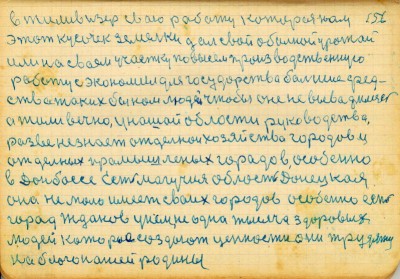 в тили визер сваю работу которая нам 156
этот кусочек земелки дал свой обилной урожай
или на своем участку повысел производственую
работу с экономил для государства балшие сред-
ства таких бы нам людей чтобы оне не
а тили вечно, у нашой области руководства,
разве не знает отделной хозяйства городов и
отделных промышленых гарадов, особенно
в Донбассе есть магучия область Донецкая
она не мало имеет своих городов особенно есть
горад Жданов у нем не одна тысяча здоровых
людей которае создают ценности они трудятся
на благо нашей родины